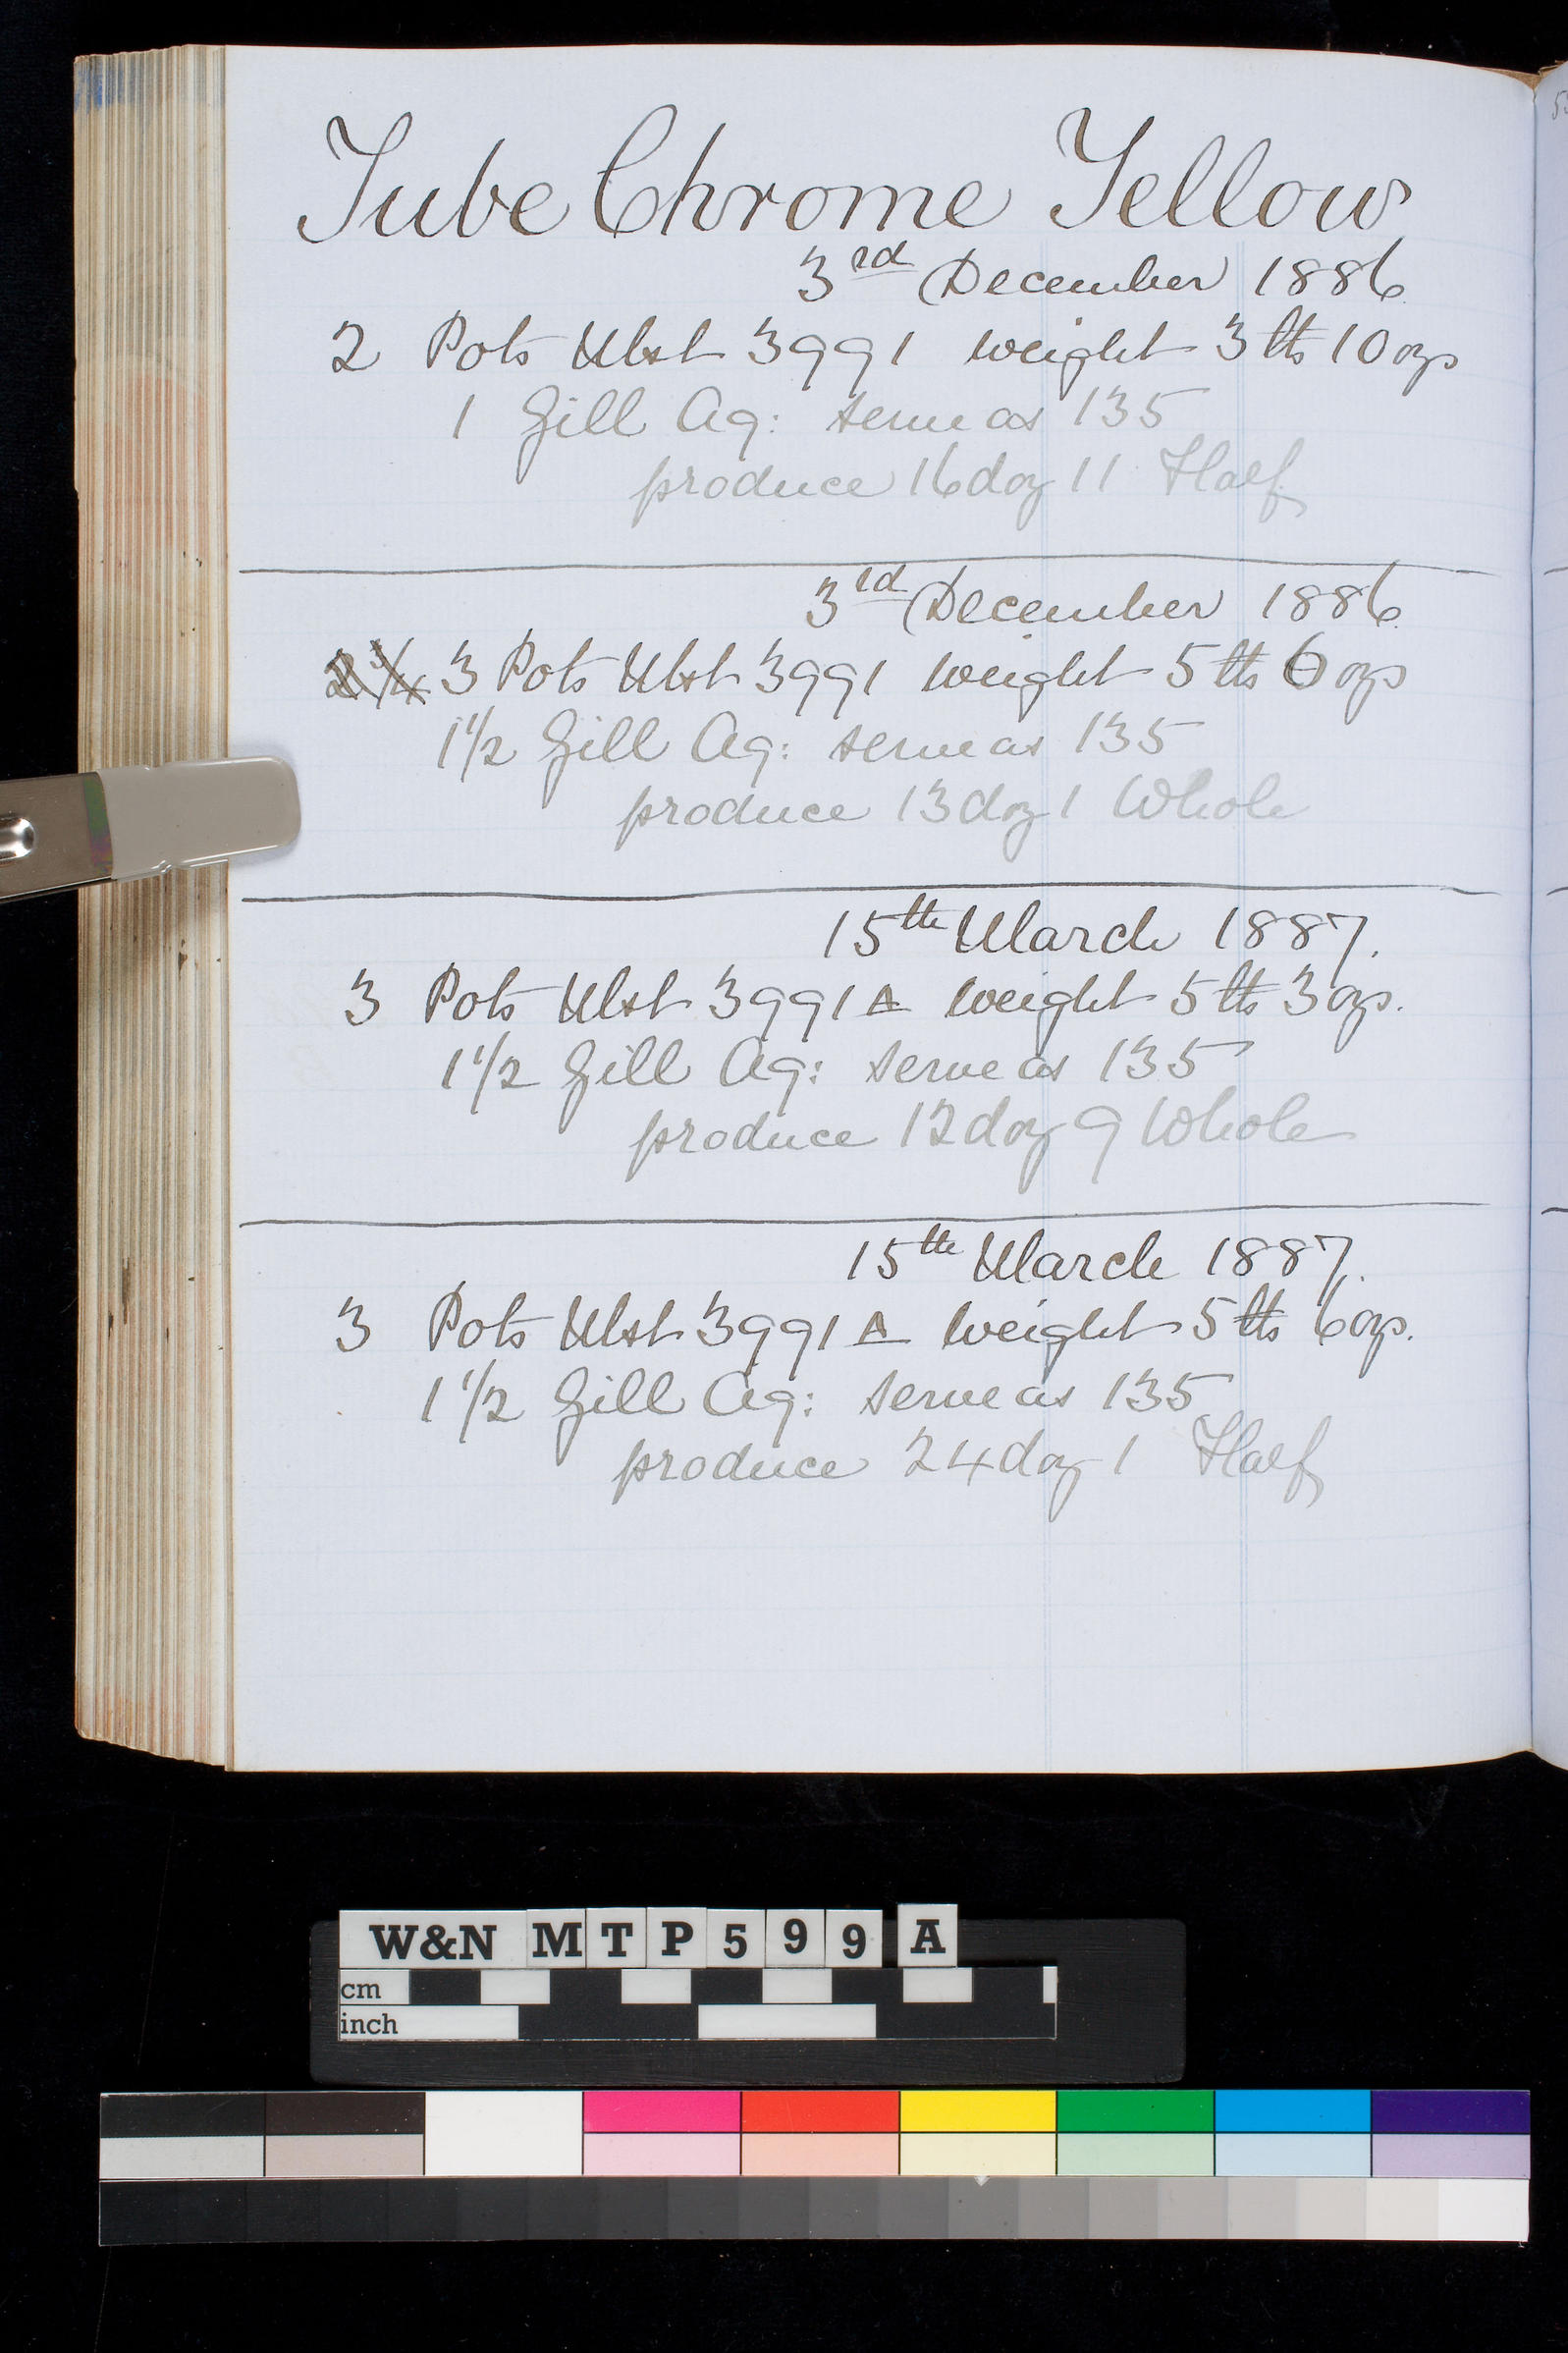 Tube Chrome Yellow
3rd December 1886
2 Pots Mst 3991 weight 3 lbs 10 ozs
1 Gill Aq: serve as 135
produce 16 doz 11 Half
3rd December 1886
2 3/4 3 Pots Mst 3991 weight 5 lbs 6 ozs
1 1/2 Gill Aq: serve as 135
produce 13 doz 1 Whole
15th March 1887.
3 Pots Mst 3991 A weight 5 lbs 3 ozs.
1 1/2 Gill Aq: serve as 135
produce 12 doz 9 Whole
15th March 1887.
3 Pots Mst 3991 A weight 5 lbs 6 ozs.
1 1/2 Gill Aq: serve as 135
produce 24 doz 1 Half
W&N MTP599 A
cm
inch